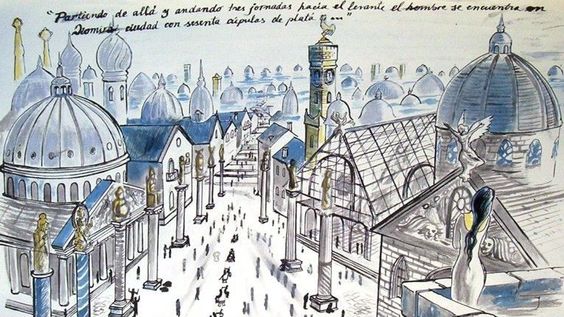 "Partiendo de allá y andando tres jornadas hacia el levante el hombre se encuentra en
Diomira, ciudad con sesenta cúpulas de plata